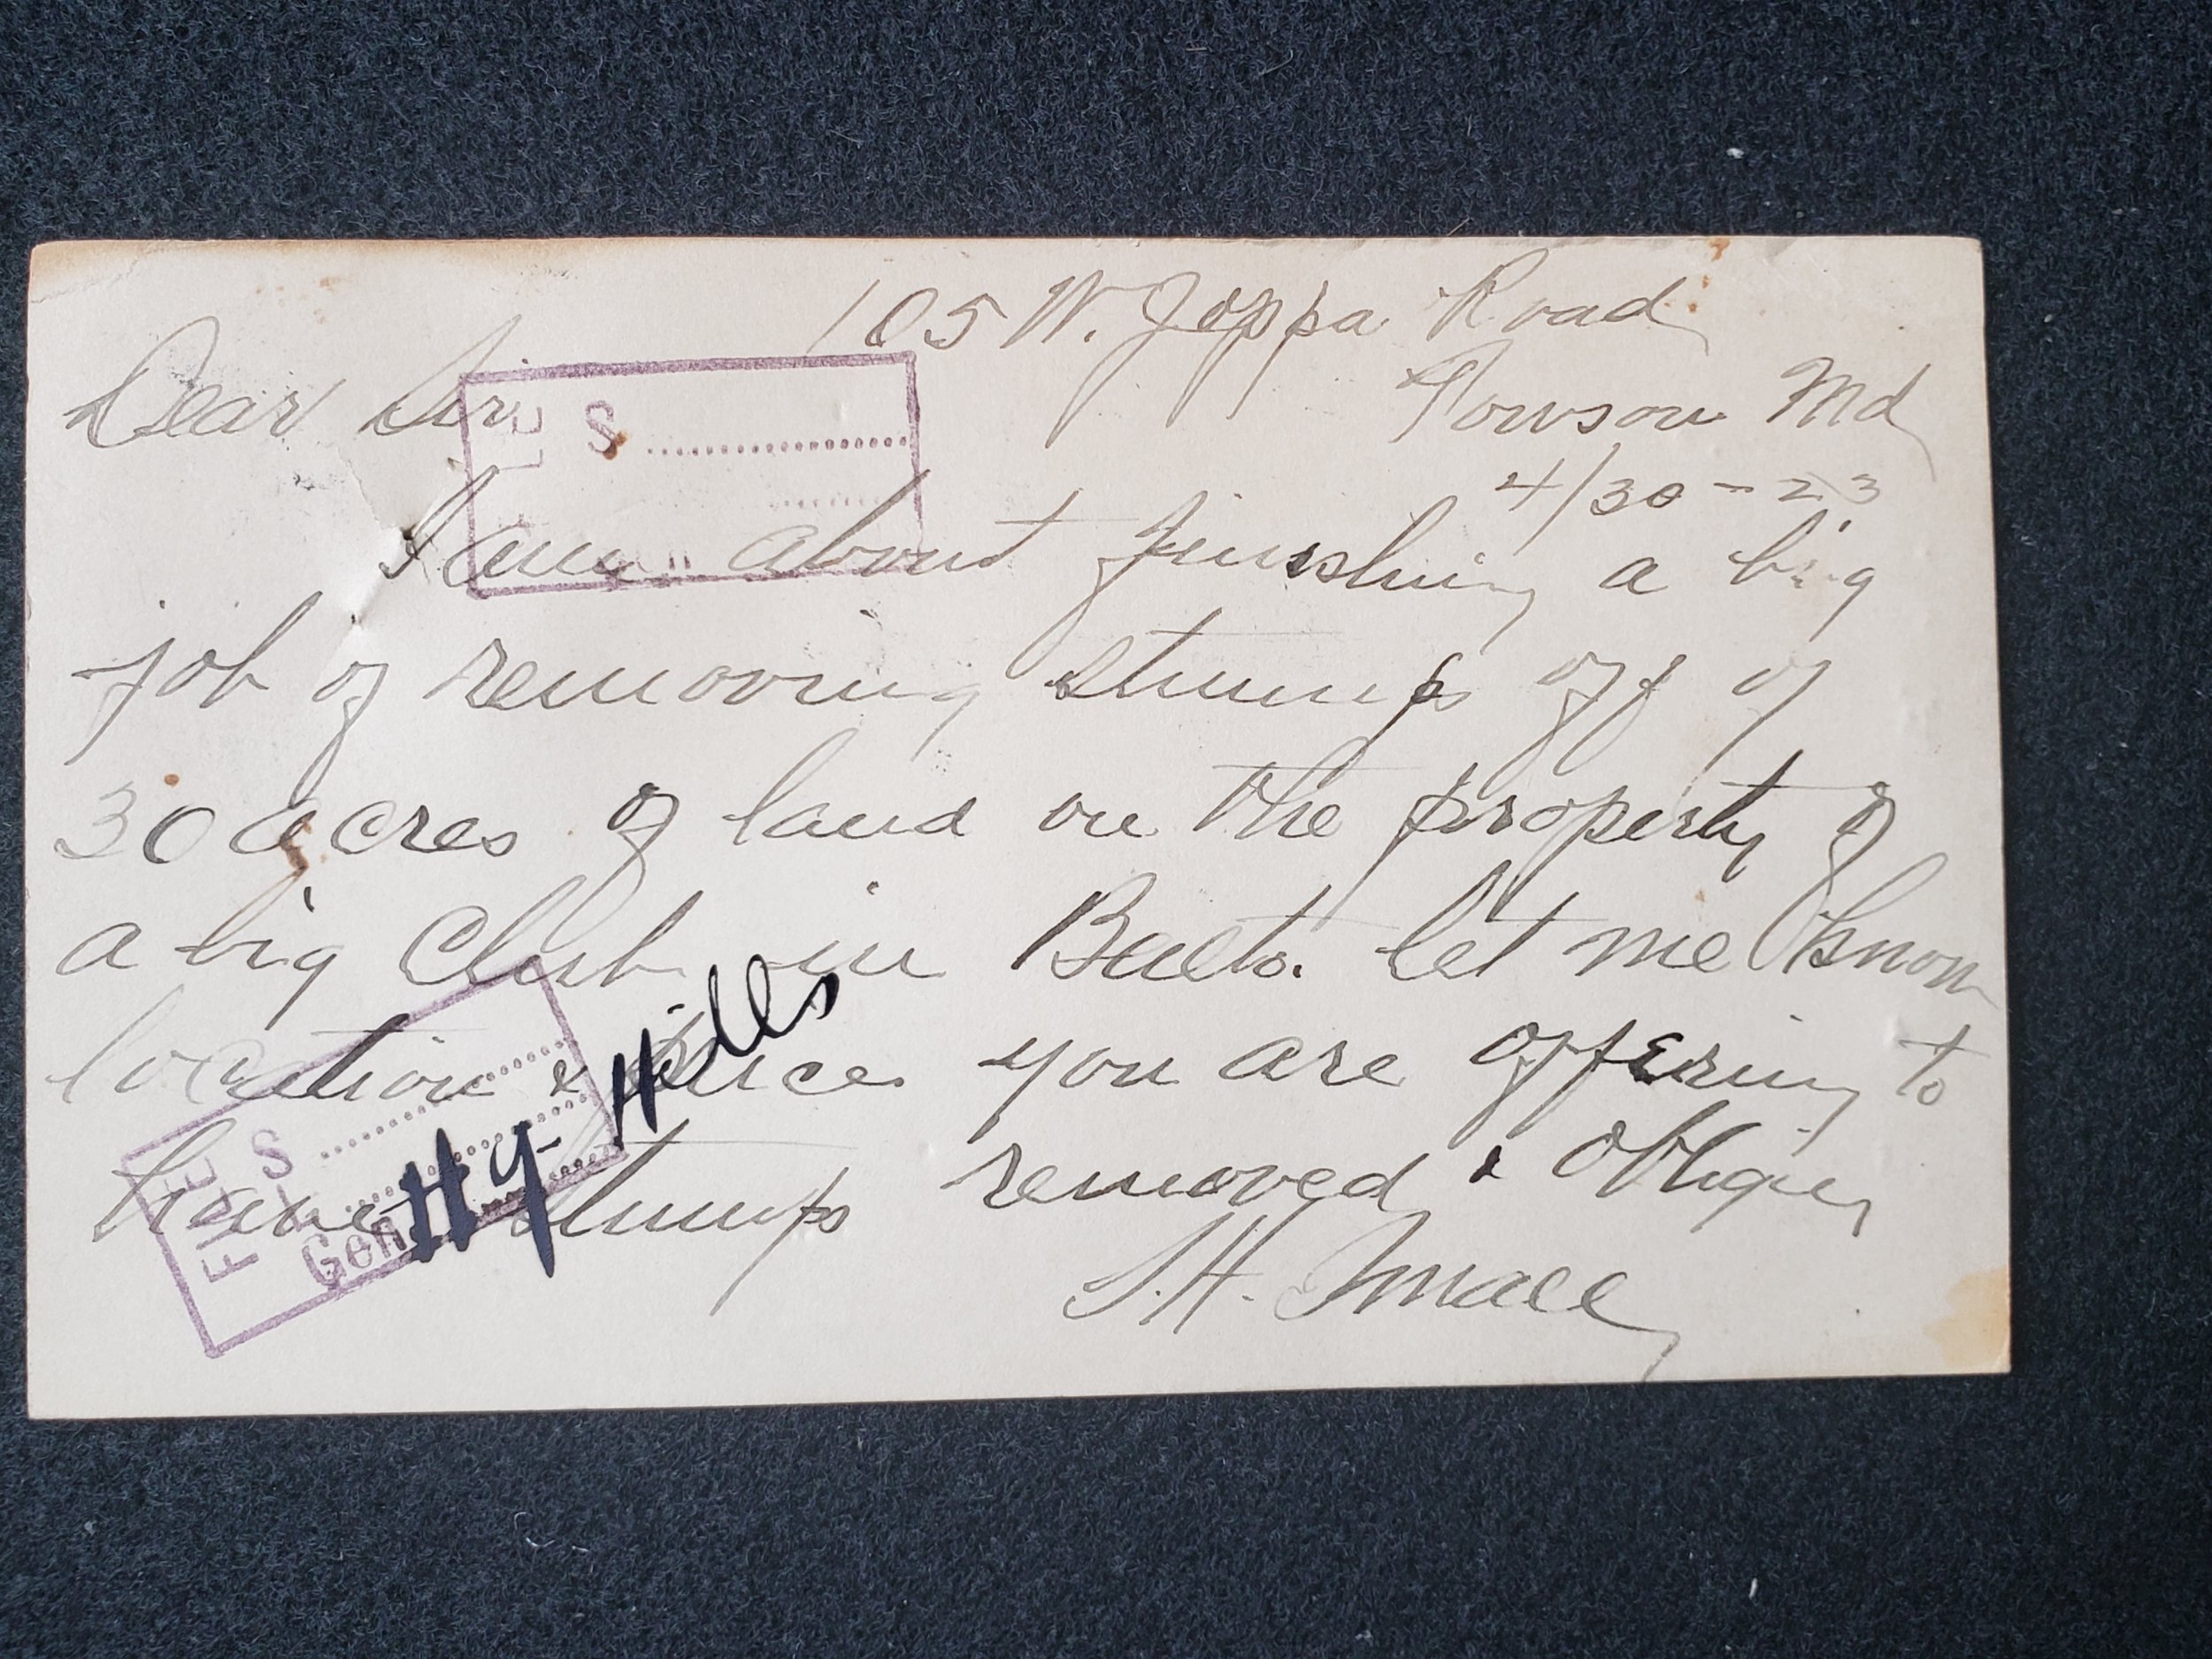 105 W. Joppa Road
Towson Md
4/30-23
Dear Sir
I am about finishing a big
job of removing stumps off of
30 acres of land on the property of
a big Club in Balto. let me know
location & price you are offering to
have stumps removed & oblige,
S.H.
FILE S
FILE S
Gen
Hy Hills